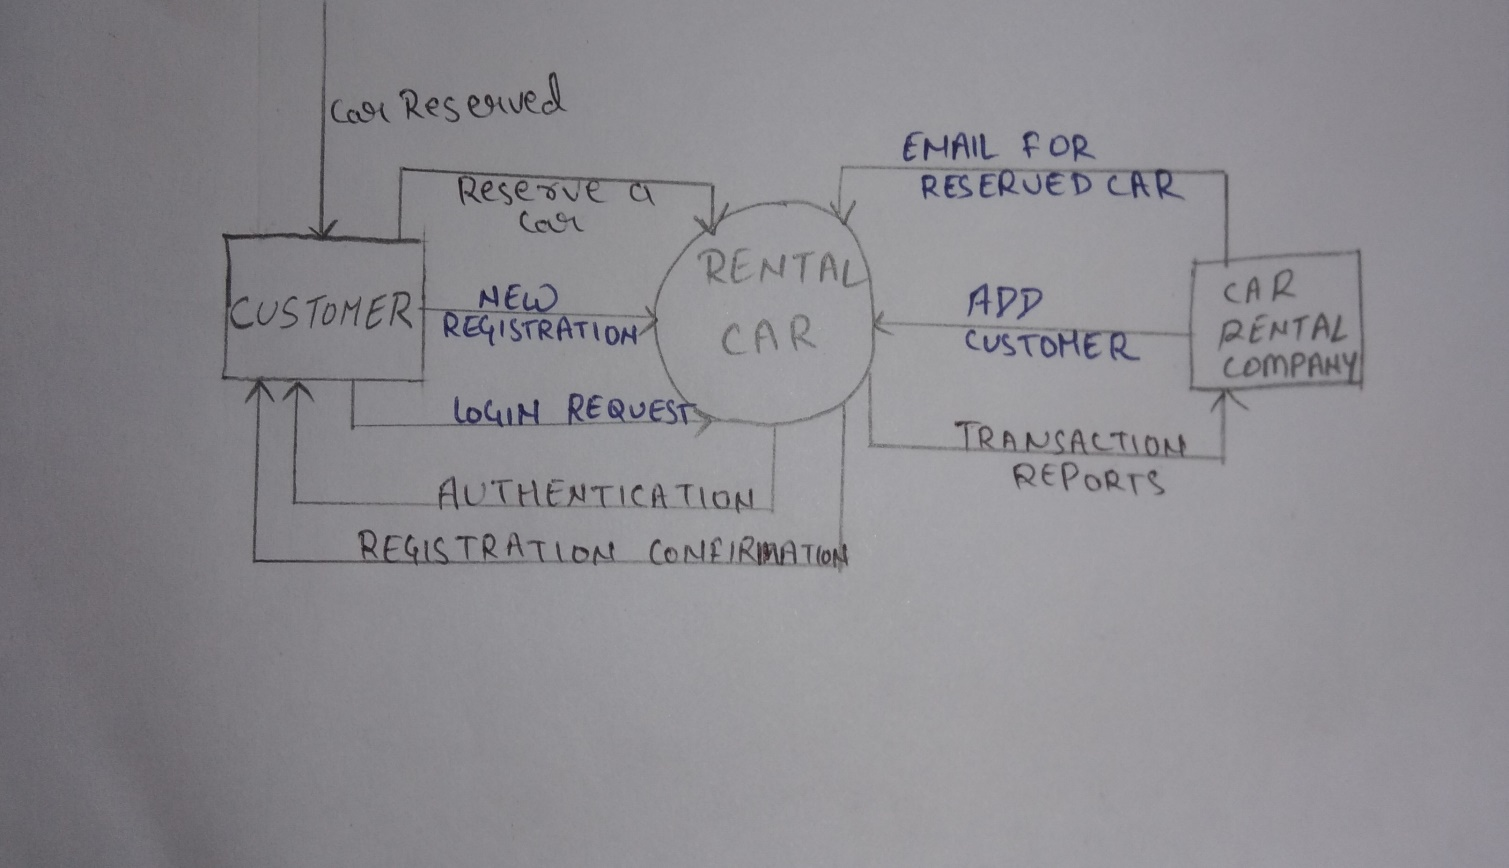 Car Reserved
EMAIL FOR
RESERVED CAR
Reserve a
Car
RENTAL
CAR
CUSTOMER
NEW
REGISTRATION
ADD
CUSTOMER
CAR
RENTAL
COMPANY
LOGIN REQUEST
TRANSACTION
REPORTS
AUTHENTICATION
REGISTRATION CONFIRMATION